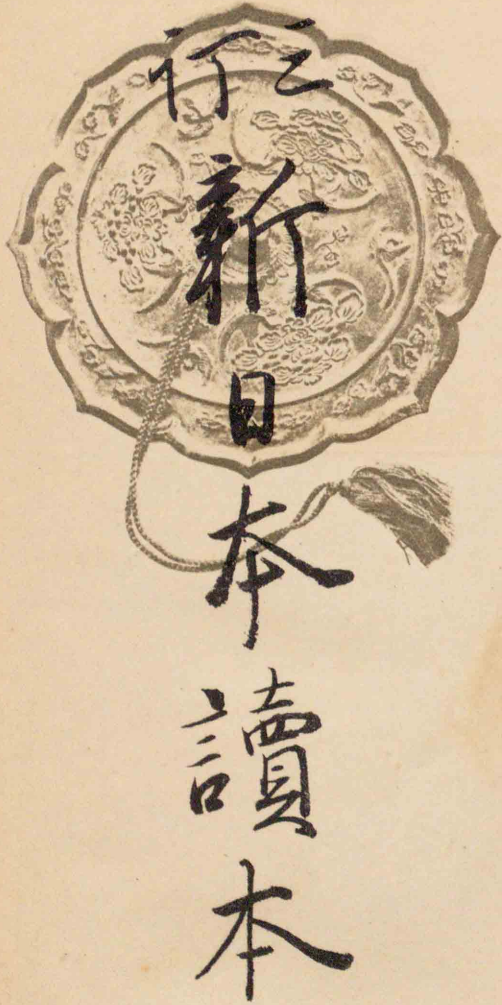 三訂
新日本讀本